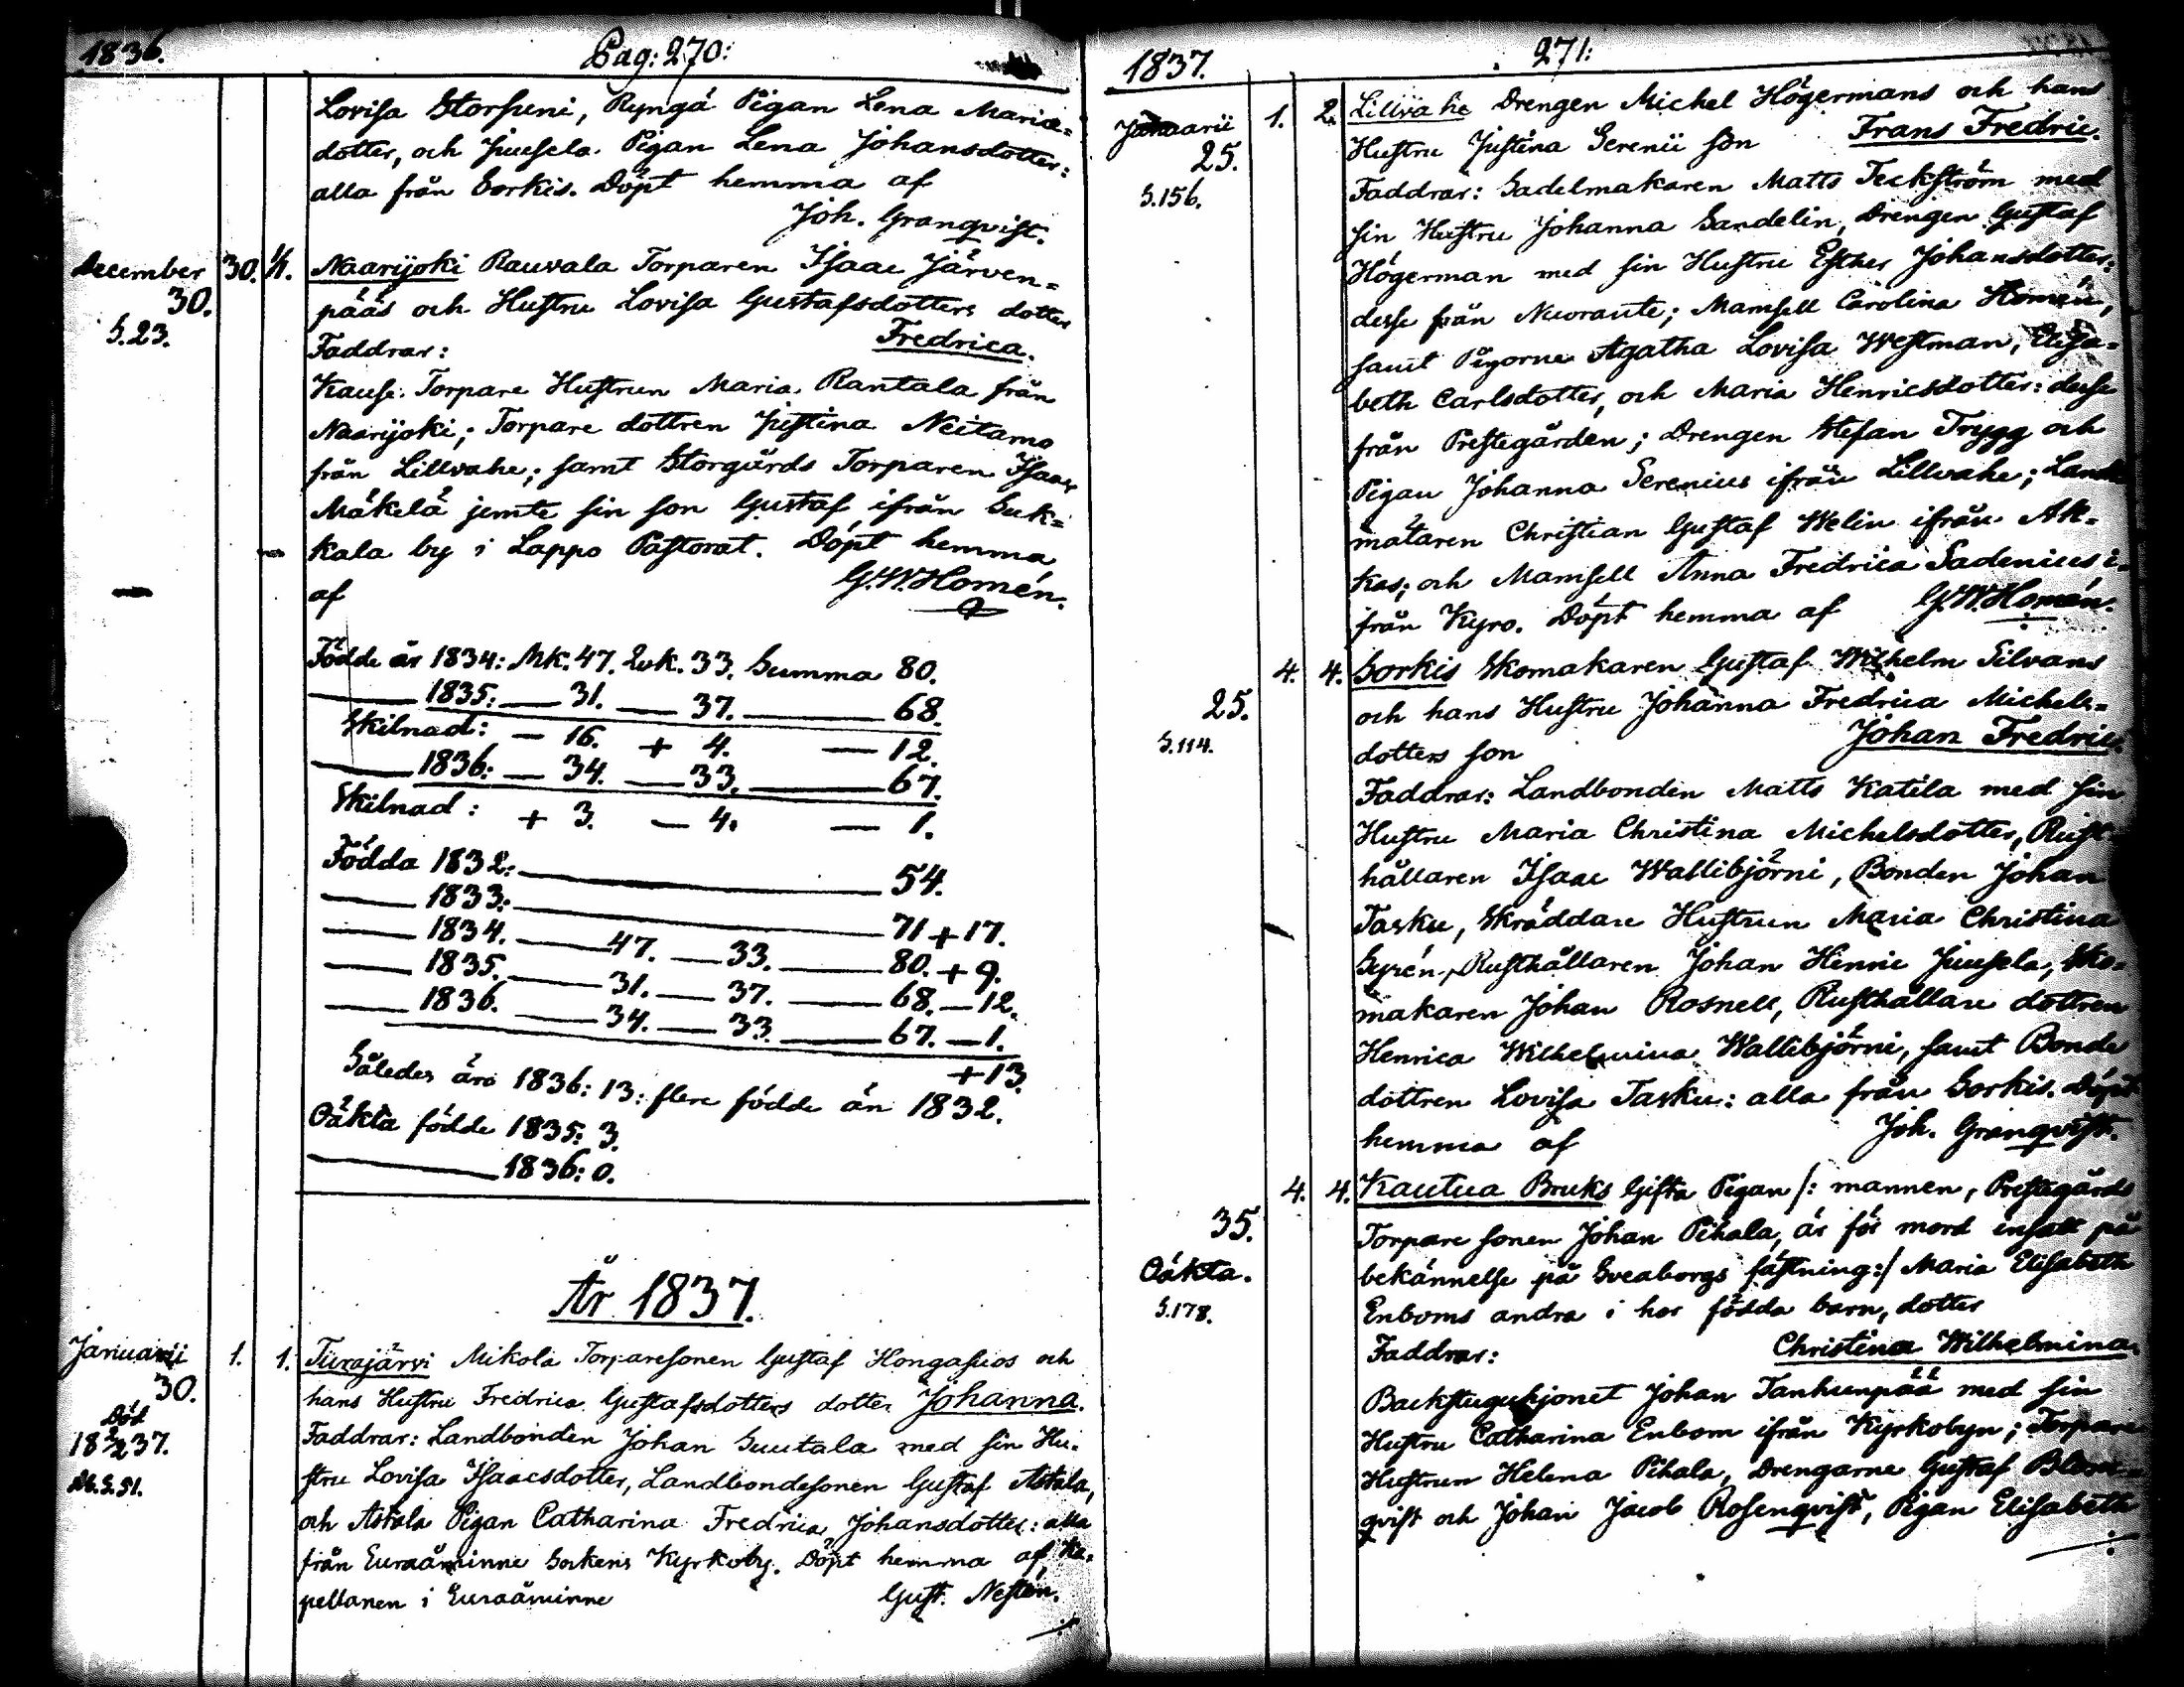 1836.
Pag: 270:
Lovisa Storseni, Ryngä Pigan Lena Maria=
dotter, och Juusela Pigan Lena Johansdotter:
alla från Sorkis. Döpt hemma af
Joh. Granqvist.
December 30. 1/1. Naarijoki Rauvala Torparen Isaac Järven=
30. pääs och Hustru Lovisa Gustafsdotters dotter
S.23. Faddrar: Fredrica.
Krause Torpare Hustrun Maria Rantala från
Naarijoki; Torpare dottren Justina Neitamo
från Lillvahe; samt Storgårds Torparen Isaac
Mäkelä jemte sin son Gustaf ifrån Suk=
kala by i Lappo Pastorat. Döpt hemma
af G.W.Homén.
Födde år 1834: Mk. 47. Qvk. 33. Summa 80.
1835: — 31. — 37. — 68.
Skilnad: — 16. + 4. — 12.
1836: — 34. — 33. — 67.
Skilnad: + 3. — 4. — 1.
Födda 1832: — 54.
— 1833: — 71 + 17.
— 1834. — 47. — 33. — 80. + 9.
— 1835. — 31. — 37. — 68. — 12.
— 1836. — 34. — 33. — 67. — 1.
+ 13.
Således äro 1836: 13: flere födde än 1832.
Oäkta födde 1835: 3.
— 1836: 0.
År 1837.
Januarii 1. 1. Turajärvi Mikola Torparesonen Gustaf Hongasuos och
30. hans Hustru Fredrica Gustafsdotters dotter Johanna.
Död
18 2/2 37. Faddrar: Landbonden Johan Suutala med sin Hu=
stru Lovisa Isaacsdotter, Landbondesonen Gustaf Astala,
och Astala Pigan Catharina Fredrica Johansdotter: alla
från Euraåminne Sockens Kyrkoby. Döpt hemma af Ka=
pellanen i Euraåminne Gust. Nestén.
1837.
271:
Januarii 1. 2. Lillvahe Drengen Michel Högermans och hans
25. Hustru Justina Serenii son Frans Fredric.
S.156. Faddrar: Sadelmakaren Matts Teckström med
sin Hustru Johanna Sandelin, Drengen Gustaf
Högerman med sin Hustru Esther Johansdotter:
desse från Nuorante; Mamsell Carolina Homén,
samt Pigorne Agatha Lovisa Westman, Elisa=
beth Carlsdotter, och Maria Henricsdotter: desse
från Prestegården; Drengen Stefan Trygg och
Pigan Johanna Serenius ifrån Lillvahe; Landt
mätaren Christian Gustaf Welin ifrån Ak=
kas; och Mamsell Anna Fredrica Sadenius i=
från Kyro. Döpt hemma af G.W.Homén.
4. 4. Sorkis Skomakaren Gustaf Wilhelm Silvans
25. och hans Hustru Johanna Fredrica Michels=
S.114. dotters son Johan Fredric.
Faddrar: Landbonden Matts Katila med sin
Hustru Maria Christina Michelsdotter, Rust=
hållaren Isaac Wallibjörni, Bonden Johan
Tasku, Skräddare Hustrun Maria Christina
Syrén, Rusthållaren Johan Hinric Juusela, Sko=
makaren Johan Rosnell, Rusthållare dottren
Henrica Wilhelmina Wallibjörni, samt Bonde
dottren Lovisa Tasku: alla från Sorkis. Döpt
hemma af Joh. Granqvist.
4. 4. Kautua Bruks Gifta Pigan /: mannen, Prestegårds
35. Torpare sonen Johan Pihala, är för mord insatt på
Oäkta. bekännelse på Sveaborgs fästning:/ Maria Elisabeth
S.178. Enboms andra i hor födda barn, dotter
Faddrar: Christina Wilhelmina.
Backstuguhjonet Johan Tanhuanpää med sin
Hustru Catharina Enbom ifrån Kyrkobyn; Torpare
Hustrun Helena Pihala, Drengarne Gustaf Blom=
qvist och Johan Jacob Rosenqvist, Pigan Elisabeth